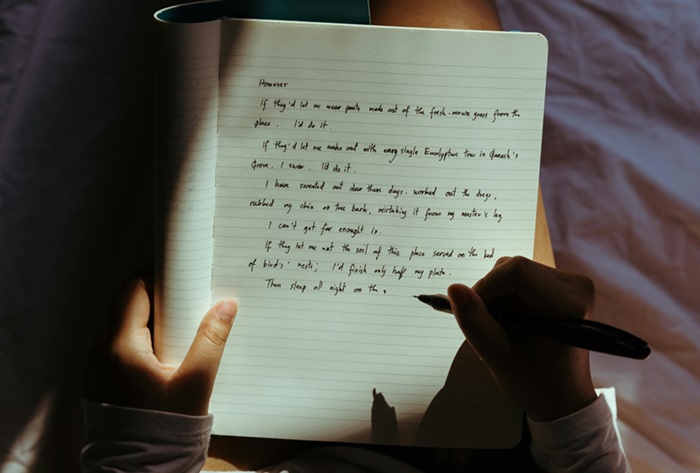 However
If they'd let me wear pants made out of the fresh-nerve grass from the
place. I'd do it.
If they'd let me make out with every single Eucalyptus tree in Queneck's
Grove. I swear. I'd do it.
I have sweated out over these days. worked out the dregs,
rubbed my chin on the bark, mistaking it from my master's leg
I can't get far enought in.
If they let me eat the soil of this place served on the bed
of birds' nests; I'd finish only half my plate.
Then sleep all night on the